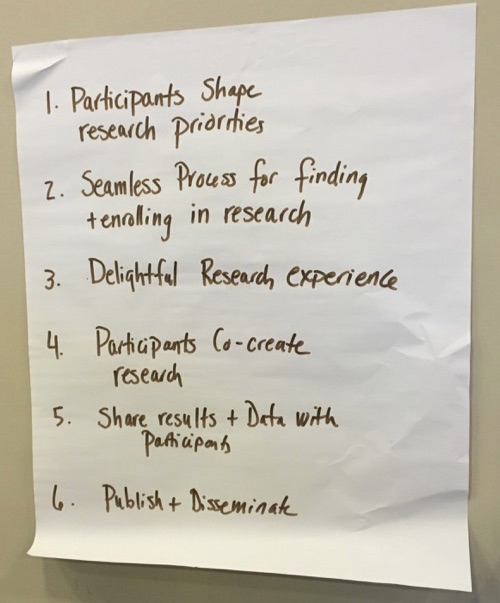 1. Participants Shape
research priorities
2. Seamless Process for finding
+ enrolling in research
3. Delightful Research experience
4. Participants Co-create
research
5. Share results + Data with
Participants
6. Publish + Disseminate